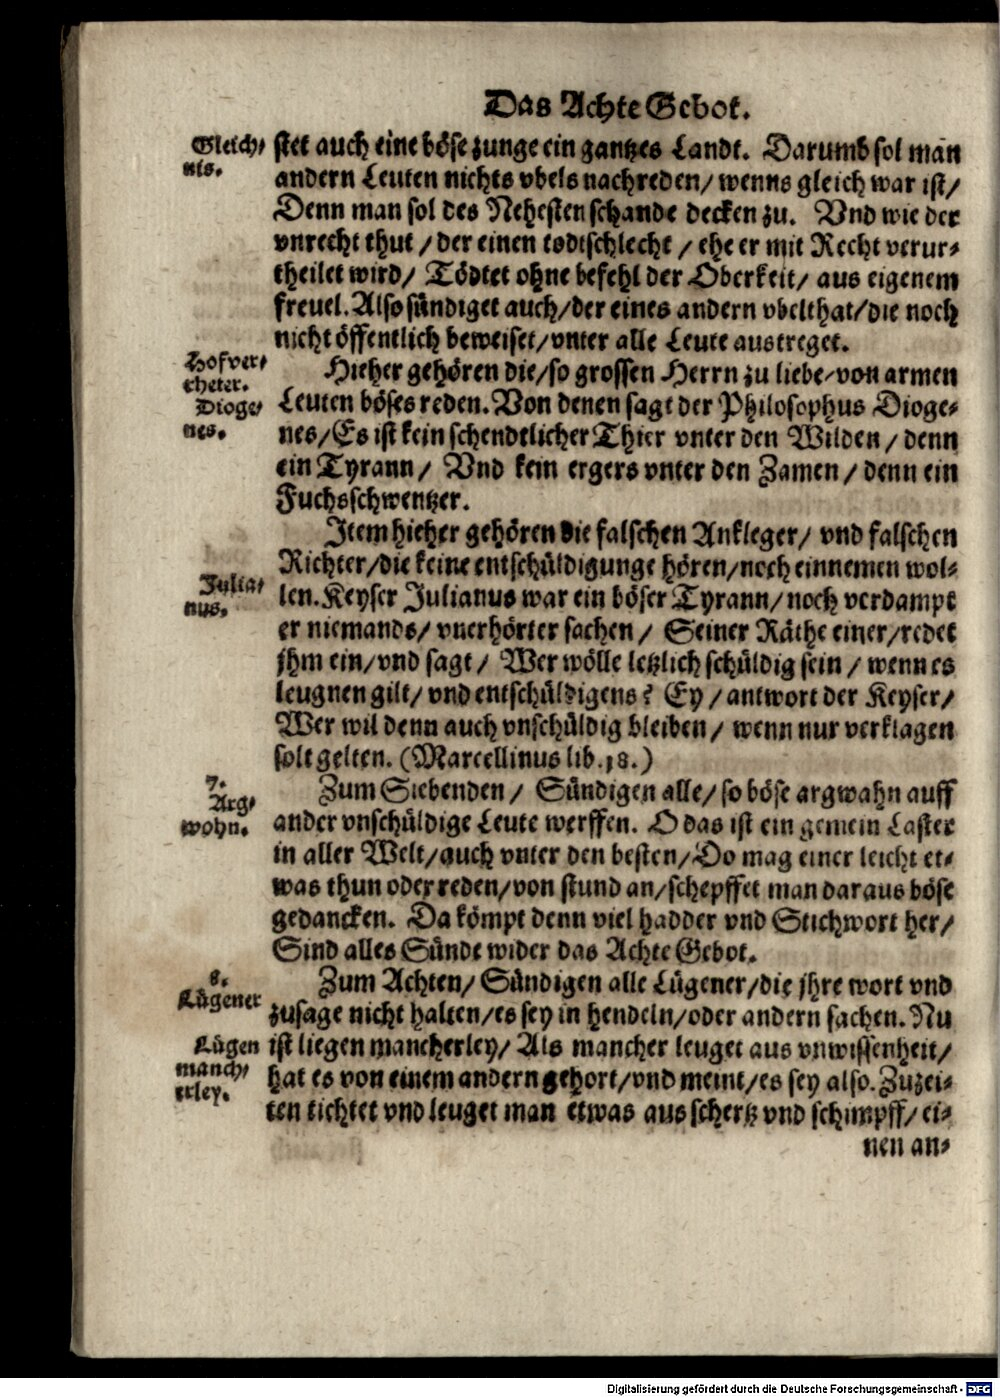 Das Achte Gebot.
Gleich-
nis.
stet auch eine böse zunge ein gantzes Landt. Darumb sol man
andern Leuten nichts vbels nachreden/ wenns gleich war ist/
Denn man sol des Nehesten schande decken zu. Vnd wie der
vnrecht thut / der einen todtschlecht / ehe er mit Recht verur-
theilet wird/ Tödtet ohne befehl der Oberkeit/ aus eigenem
freuel. Also sündiget auch/der eines andern vbelthat/die noch
nicht öffentlich beweiset/vnter alle Leute austreget.
Hofver-
rheter.
Dioge-
nes.
Hieher gehören die/so grossen Herrn zu liebe/von armen
Leuten böses reden. Von denen sagt der Philosophus Dioge-
nes/Es ist kein schendtlicher Thier vnter den Wilden / denn
ein Tyrann / Vnd kein ergers vnter den Zamen / denn ein
Fuchsschwentzer.
Item hieher gehören die falschen Ankleger/ vnd falschen
Richter/die keine entschüldigunge hören/noch einnemen wol-
Julia-
nus.
len. Keyser Julianus war ein böser Tyrann/ noch verdampt
er niemands/ vnerhörter sachen / Seiner Räthe einer/redet
jhm ein/vnd sagt / Wer wölle letzlich schüldig sein / wenn es
leugnen gilt/ vnd entschüldigens? Ey / antwort der Keyser/
Wer wil denn auch vnschüldig bleiben / wenn nur verklagen
solt gelten. (Marcellinus lib. 18.)
7.
Arg-
wohn.
Zum Siebenden / Sündigen alle/ so böse argwahn auff
ander vnschüldige Leute werffen. O das ist ein gemein Laster
in aller Welt/auch vnter den besten/Do mag einer leicht et-
was thun oder reden/von stund an/schepffet man daraus böse
gedancken. Da kömpt denn viel hadder vnd Stichwort her/
Sind alles Sünde wider das Achte Gebot.
8.
Lügener
Zum Achten/ Sündigen alle Lügener/die jhre wort vnd
zusage nicht halten/es sey in hendeln/oder andern sachen. Nu
Lügen
manch-
erley.
ist liegen mancherley/ Als mancher leuget aus vnwissenheit/
hat es von einem andern gehort/vnd meint/es sey also. Zuzei-
ten tichtet vnd leuget man etwas aus schertz vnd schimpff/ ei-
nen an-
Digitalisierung gefördert durch die Deutsche Forschungsgemeinschaft - DFG